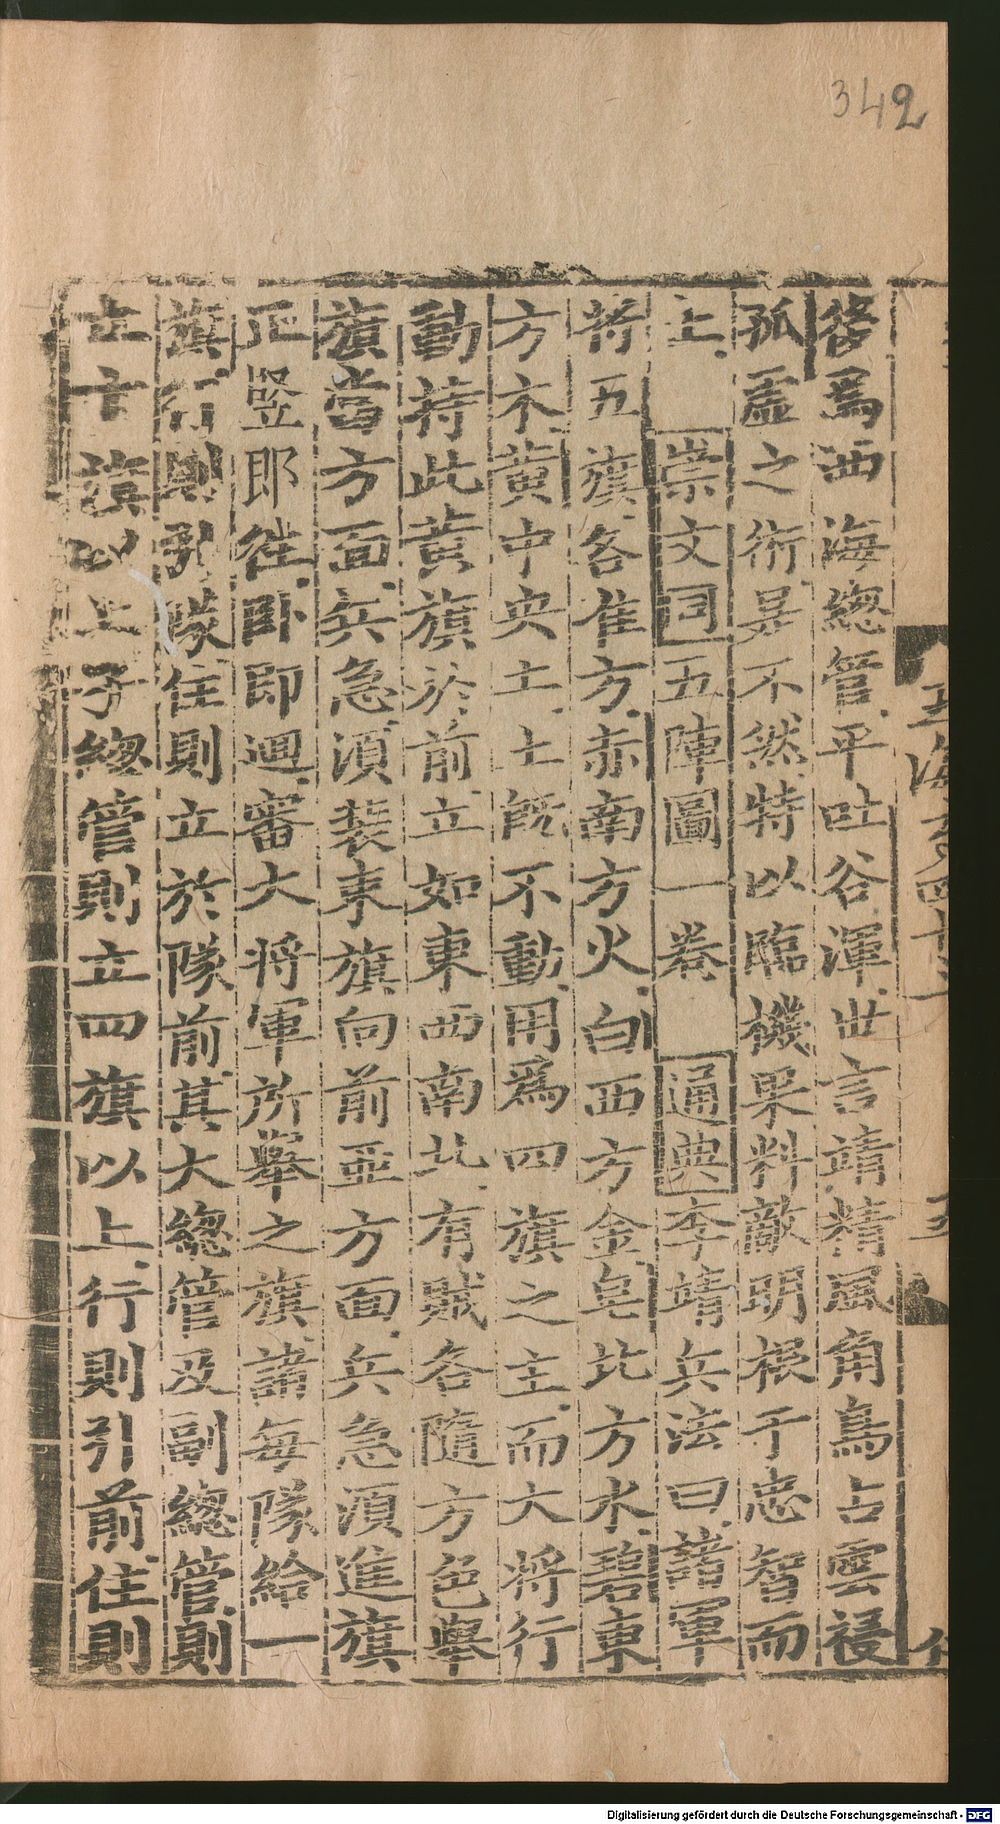 342
畧爲西海總管平吐谷渾世言靖精風角鳥占雲祲
孤虛之術是不然特以臨機果料敵明根于忠智而
上 崇文同五陣圖一卷 通典李靖兵法曰諸軍
將五旗各隹方赤南方火白西方金皂北方水碧東
方木黃中央土土旣不動用爲四旗之主而大將行
動持此黃旗於前立如東西南北有賊各隨方色舉
旗當方面兵急須裝束旗向前亞方面兵急須進旗
正竪即住卧即即迴審大將軍所舉之旗諸每隊給一
旗行則引隊住則立於隊前其大總管及副總管則
立十旗以上子總管則立四旗以上行則引前住則
玉海 四十
五
Digitalisierung gefördert durch die Deutsche Forschungsgemeinschaft - DFG